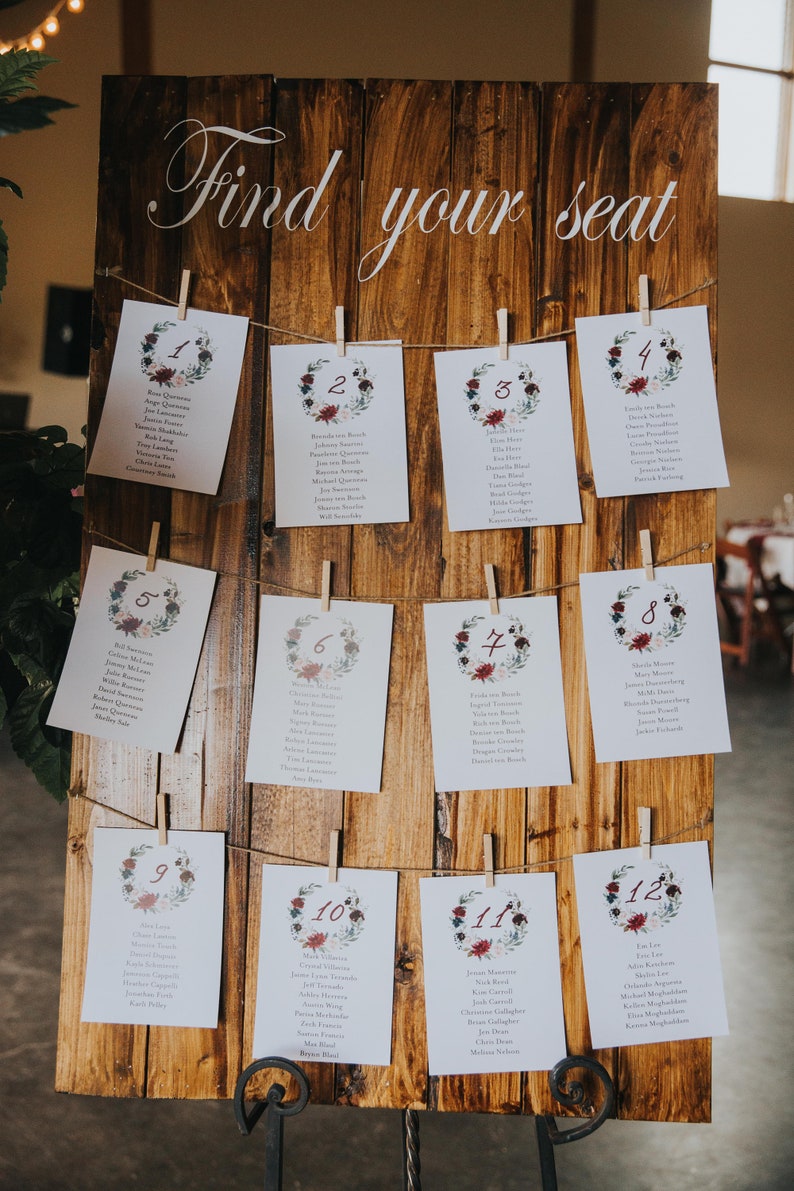 Find your seat
1
Ross Queneau
Ange Queneau
Joe Lancaster
Justin Foster
Yasmin Shakhshir
Rob Lang
Troy Lambert
Victoria Ton
Chris Lutes
Courtney Smith
2
Brenda ten Bosch
Johnny Saurini
Paulette Queneau
Jim ten Bosch
Rayona Arteaga
Michael Queneau
Joy Swenson
Jonny ten Bosch
Sharon Storlie
Will Senofsky
3
Janelle Herr
Elim Herr
Ella Herr
Eva Herr
Daniella Blaul
Dan Blaul
Tiana Godges
Brad Godges
Hilda Godges
Jose Godges
Kayson Godges
4
Emily ten Bosch
Derek Nielsen
Owen Proudfoot
Lucas Proudfoot
Crosby Nielsen
Britton Nielsen
Georgie Nielsen
Jessica Rice
Patrick Furlong
5
Bill Swenson
Celine McLean
Jimmy McLean
Julie Ruesser
Willie Ruesser
David Swenson
Robert Queneau
Janet Queneau
Shelley Sale
6
Weston McLean
Christine Bellini
Mary Ruesser
Mark Ruesser
Signey Ruesser
Alex Lancaster
Robyn Lancaster
Arlene Lancaster
Tim Lancaster
Thomas Lancaster
Amy Byes
7
Frida ten Bosch
Ingrid Tonisson
Yüla ten Bosch
Rich ten Bosch
Denise ten Bosch
Brooke Crowley
Dragan Crowley
Daniel ten Bosch
8
Sheila Moore
Mary Moore
James Duesterberg
MiMi Davis
Rhonda Duesterberg
Susan Powell
Jason Moore
Jackie Fichardt
9
Alex Loya
Chase Lawton
Monica Touch
Daniel Dupuis
Kayla Schmierer
Jameson Cappelli
Heather Cappelli
Jonathan Firth
Karli Pelley
10
Mark Villaviza
Crystal Villaviza
Jaime Lynn Terando
Jeff Ternado
Ashley Herrera
Austin Wing
Parisa Merhinfar
Zech Francis
Saxton Francis
Max Blaul
Brynn Blaul
11
Jenan Manette
Nick Reed
Kim Carroll
Josh Carroll
Christine Gallagher
Brian Gallagher
Jen Dean
Chris Dean
Melissa Nelson
12
Em Lee
Eric Lee
Adin Ketchem
Skylin Lee
Orlando Arguesta
Michael Moghaddam
Kellen Moghaddam
Eliza Moghaddam
Kenna Moghaddam